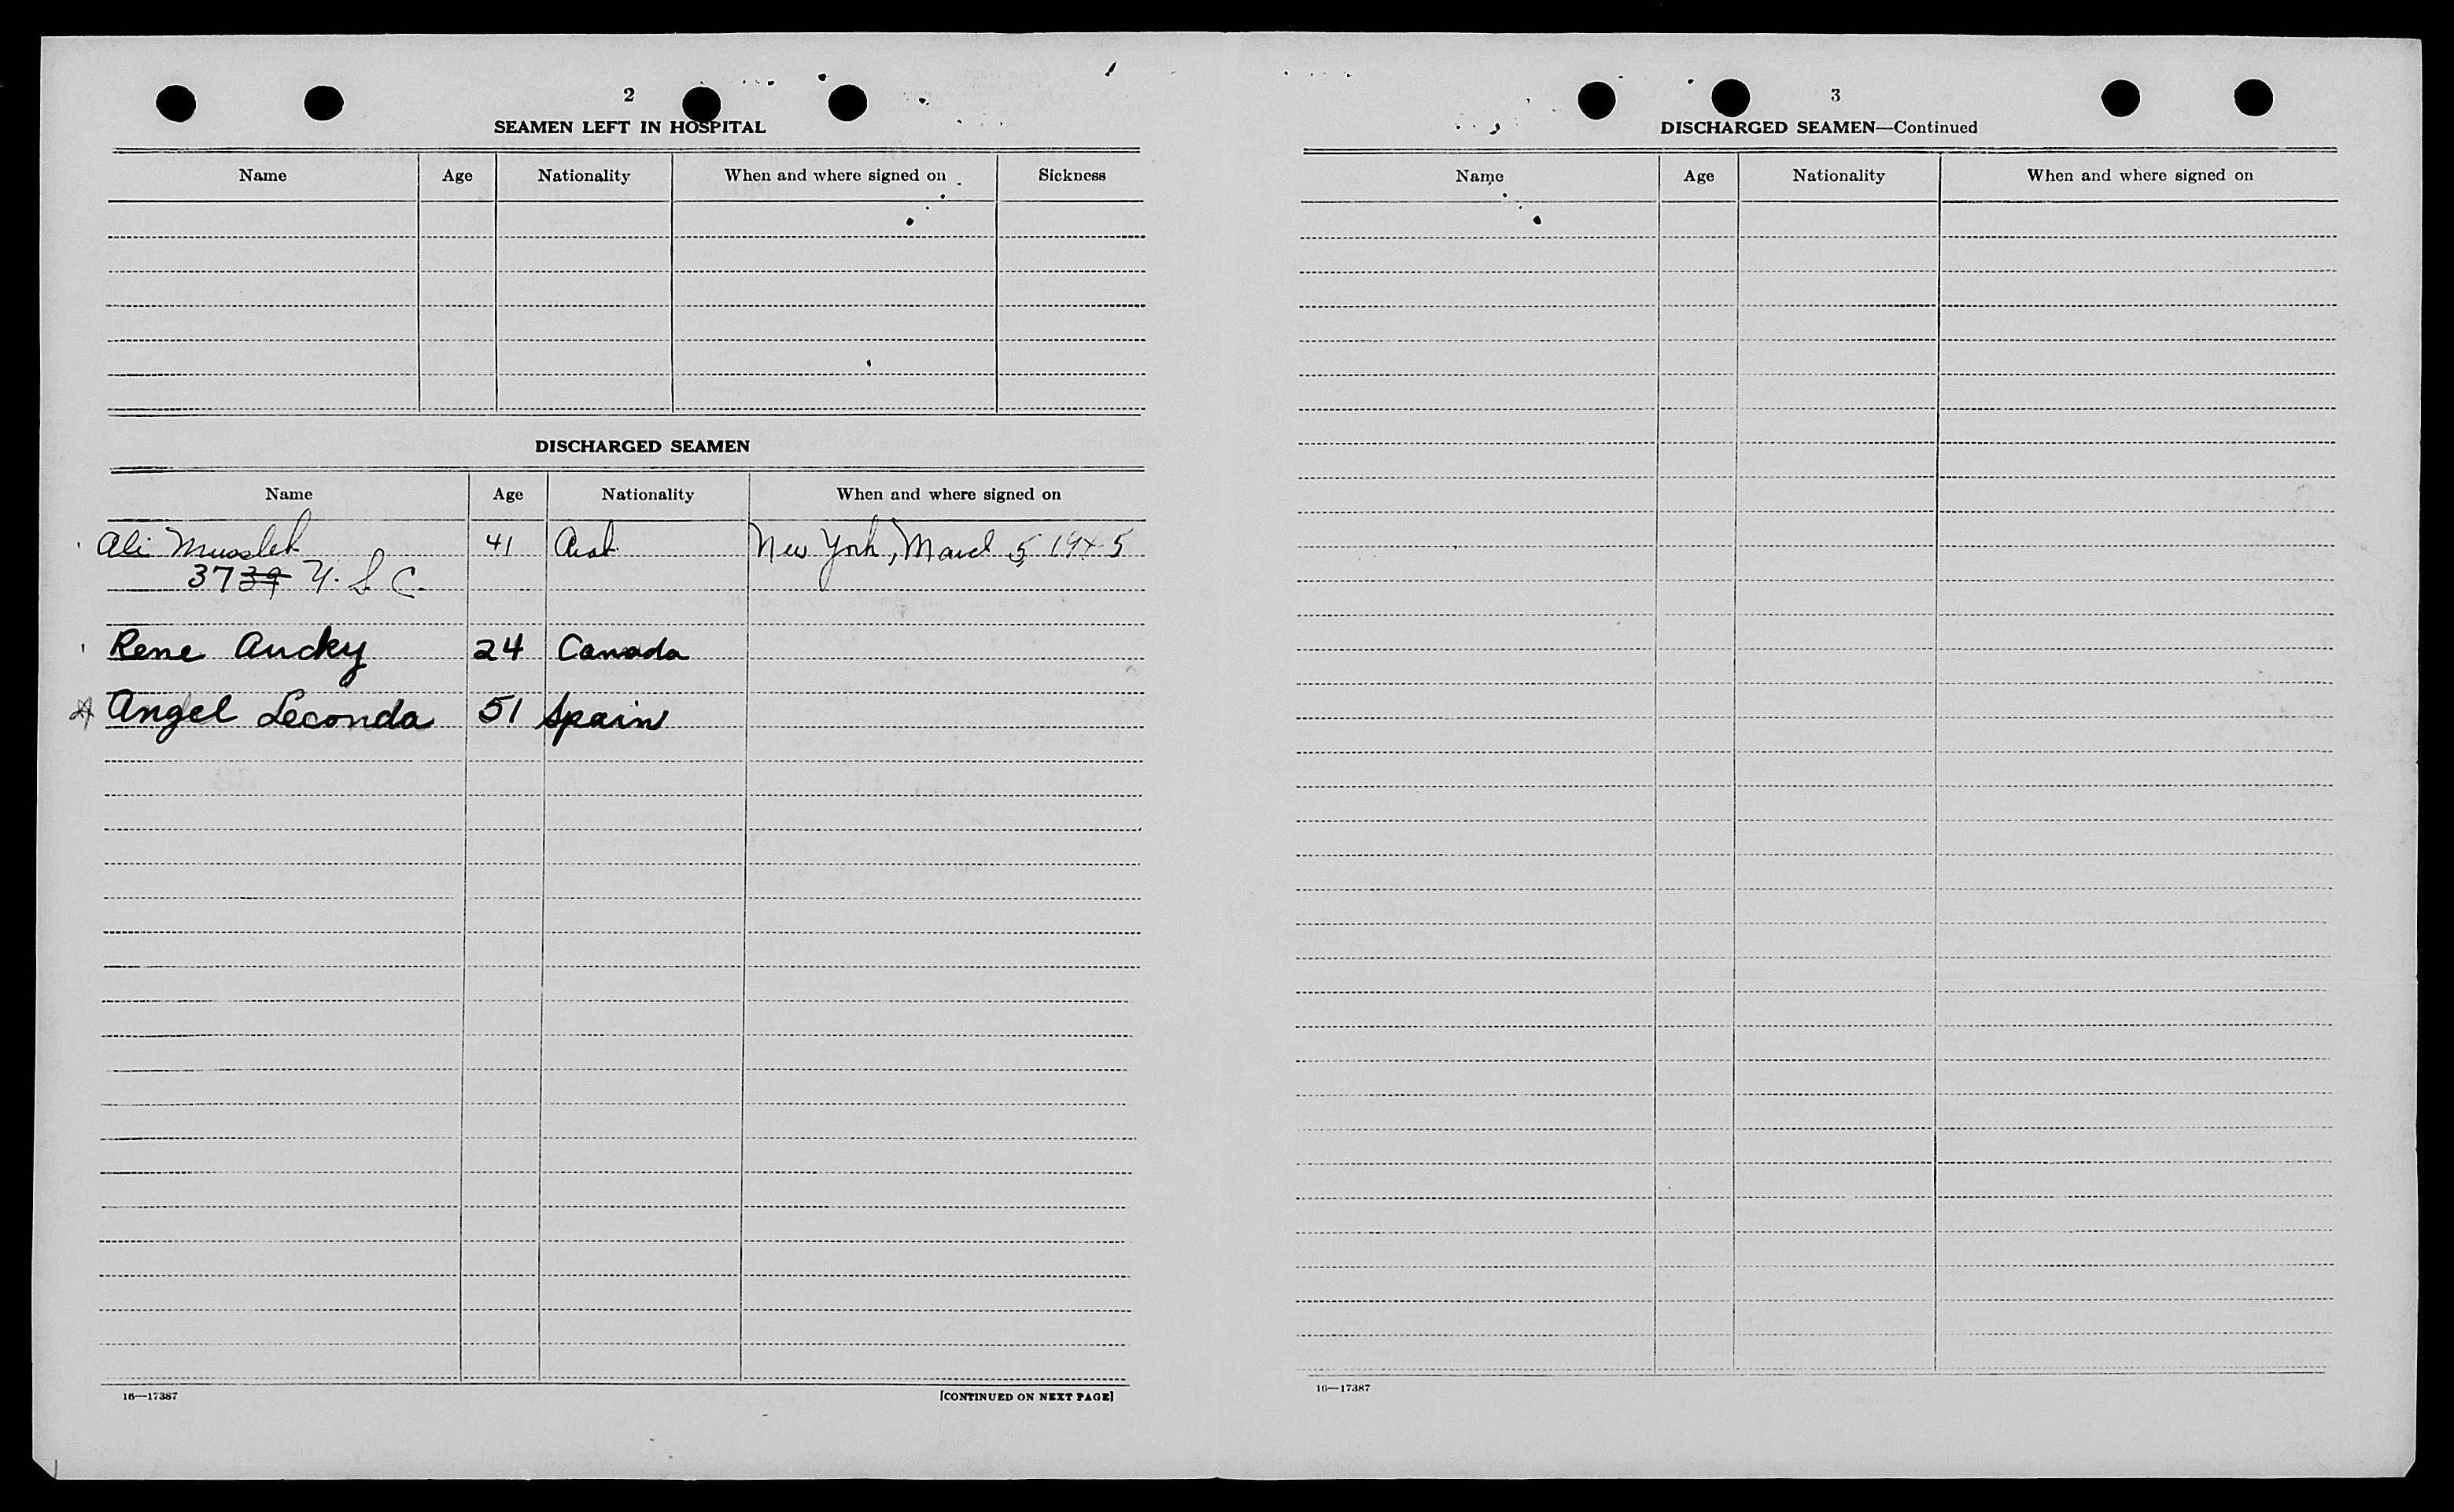 2
SEAMEN LEFT IN HOSPITAL
Name Age Nationality When and where signed on Sickness
DISCHARGED SEAMEN
Name Age Nationality When and where signed on
Ali Mussleh 41 Arab New York, March 5, 1945
37 39 U. S. C.
Rene Aucky 24 Canada
Angel Leconda 51 Spain
16—17387 [CONTINUED ON NEXT PAGE]
3
DISCHARGED SEAMEN—Continued
Name Age Nationality When and where signed on
16—17387